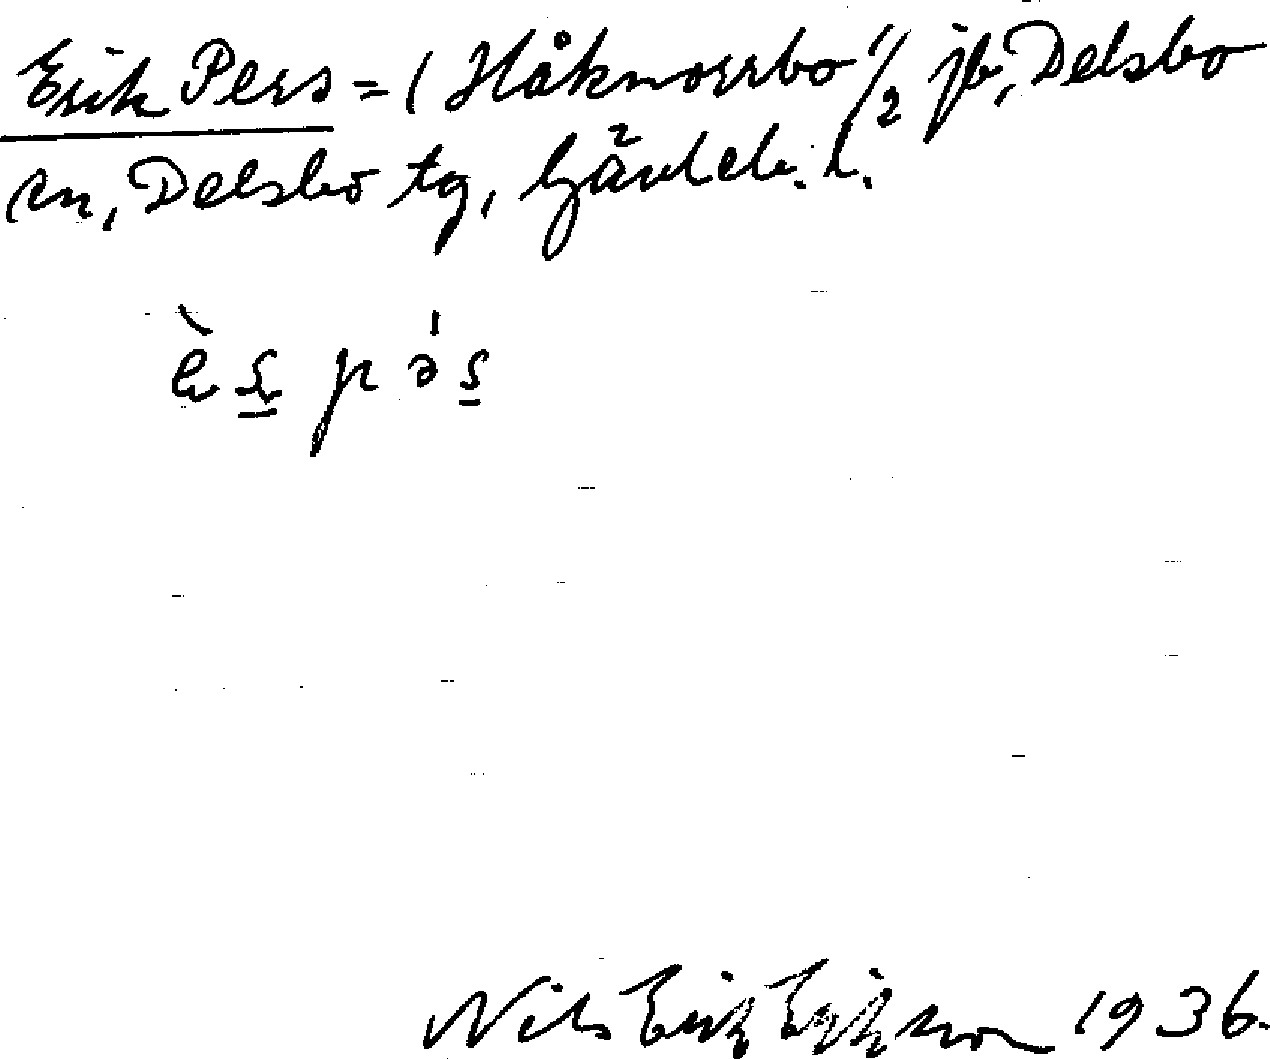 Erik Pers = (Håknorrbo 1/2 jb, Delsbo
sn, Delsbo tg, Gävleb. l.
Nils Erik Eriksson 1936.